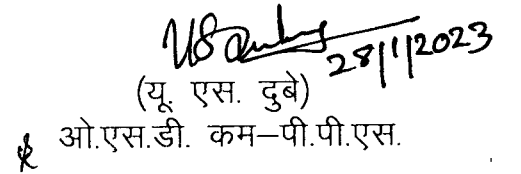 US Dubey 28/1/2023
(यू. एस. दुबे)
ओ.एस.डी. कम–पी.पी.एस.